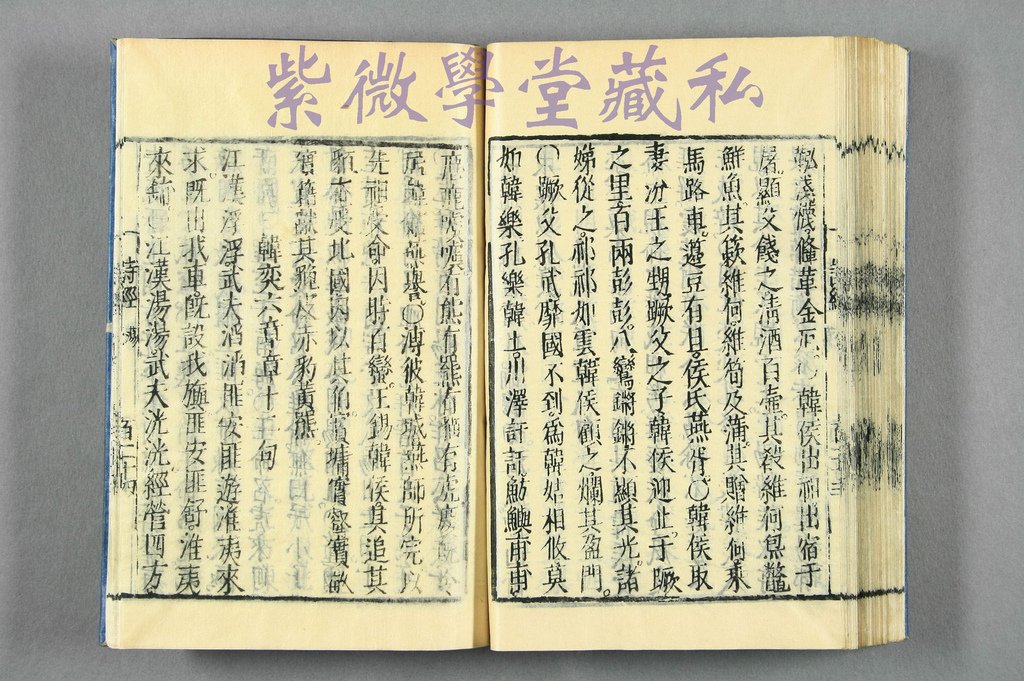 紫微學堂藏私
淺幭鞗革金厄○韓侯出祖出宿于
屠。顯父餞之清酒百壺。其殽維何炰鼈
鮮魚。其蔌維何維筍及蒲。其贈維何乘
馬路車。籩豆有且。侯氏燕胥。○韓侯取
妻汾王之甥蹶父之子韓侯迎止于蹶
之里百兩彭彭八鸞鏘鏘不顯其光諸
娣從之祁祁如雲韓侯顧之爛其盈門
○蹶父孔武靡國不到爲韓姞相攸莫
如韓樂孔樂韓土川澤訏訏魴鱮甫甫
麀鹿噳噳有熊有羆有貓有虎慶既令
居韓姞燕譽○溥彼韓城燕師所完以
先祖受命因時百蠻王錫韓侯其追其
貊奄受北國因以其伯實墉實壑實畝
實籍獻其貔皮赤豹黃羆
韓奕六章章十二句
江漢浮浮武夫滔滔匪安匪遊淮夷來
求既出我車既設我旟匪安匪舒淮夷
來鋪○江漢湯湯武夫洸洸經營四方
詩經 蕩